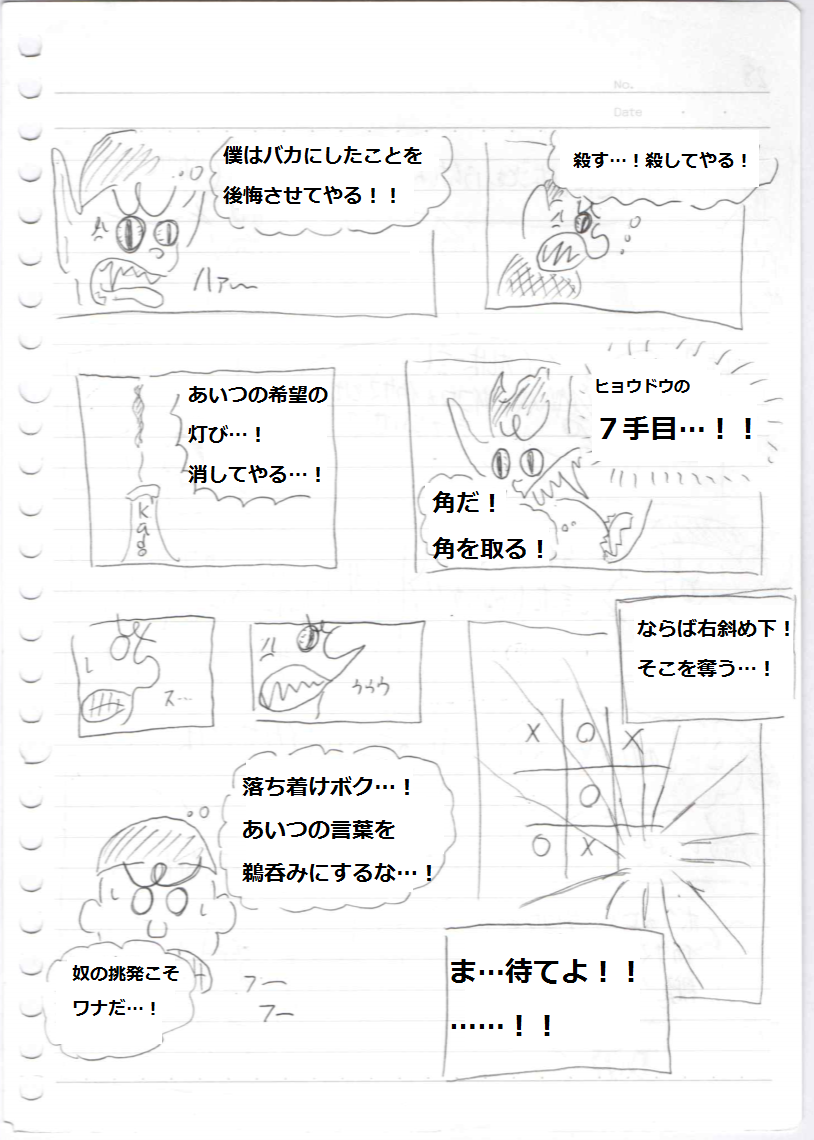 No.
Date
殺す…！殺してやる！
僕はバカにしたことを
後悔させてやる！！
ハァ〜
ヒョウドウの
７手目…！！
角だ！
角を取る！
あいつの希望の
灯び…！
消してやる…！
Kag
ならば右斜め下！
そこを奪う…！
X O X
O
O X
ゥゥゥ
ス…
落ち着けボク…！
あいつの言葉を
鵜呑みにするな…！
奴の挑発こそ
ワナだ…！
フー
フー
ま…待てよ！！
……！！